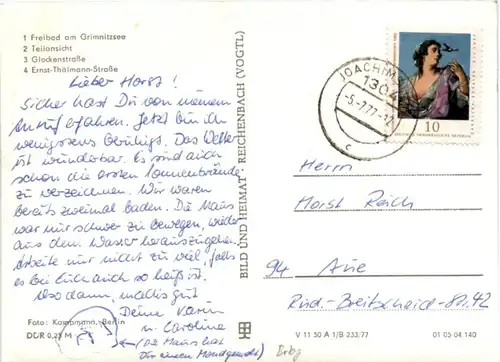 1 Freibad am Grimnitzsee
2 Teilansicht
3 Glockenstraße
4 Ernst-Thälmann-Straße
Lieber Horst!
Sicher hast Du von meinem
Anruf erfahren. Jetzt bin ich
wenigstens beruhigt. Das Wetter
ist wunderbar. Es sind auch
schon die ersten Sonnenbrände
zu verzeichnen. Wir waren
bereits zweimal baden. Die Maus
war nur schwer zu bewegen, wieder
aus dem Wasser herauszugehen.
Arbeite nur nicht zu viel, falls
es bei Euch auch so heiß ist.
Also dann, machs gut
Deine Karin
u. Caroline
(die Maus hat
Dir einen Mond gemalt)
Foto: Kaschmann, Berlin
DDR 0,25 M
BILD UND HEIMAT REICHENBACH (VOGTL)
JOACHIM
130
-5.-7.77.-12
c
10
DEUTSCHE DEMOKRATISCHE REPUBLIK
Herrn
Horst Reich
94 Aue
Rud.-Breitscheid-Str. 42
V 11 50 A 1/B 233/77
01 05 04 140
Brbg